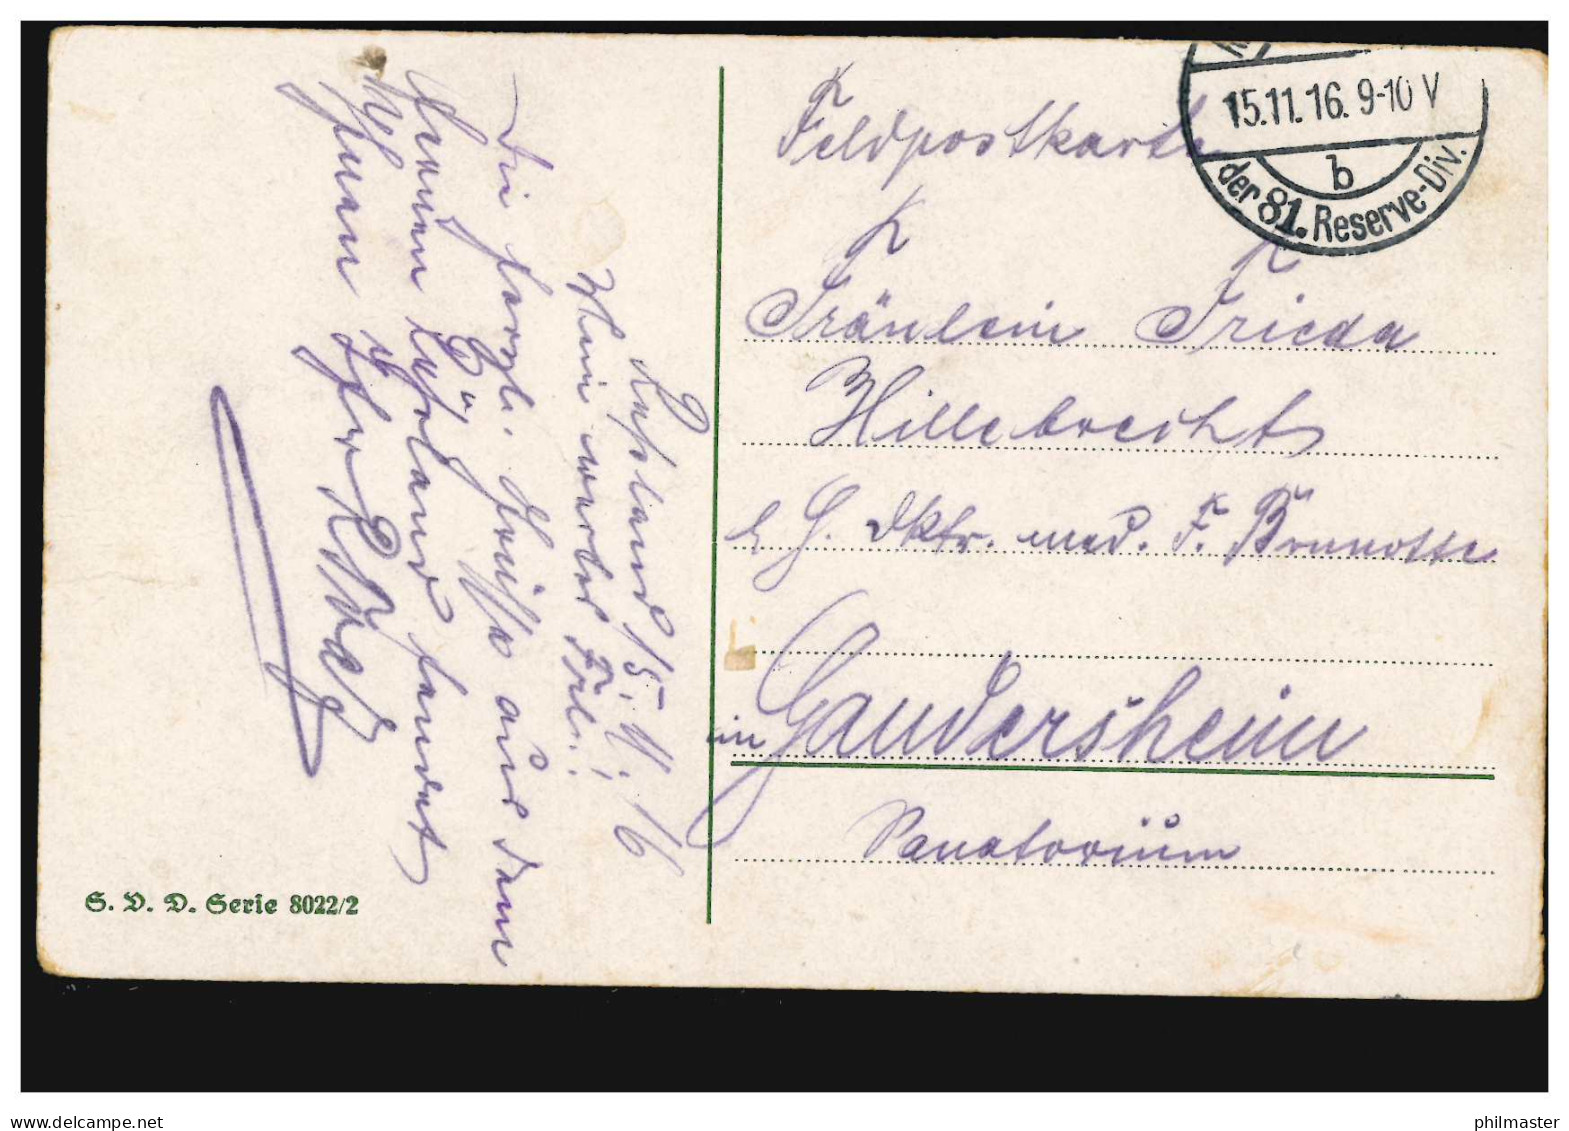 Rußland 15.11.16
Mein wertes Frl.!
Die herzl. Grüße aus dem
fernen Rußland sendet
Ihnen Ihr
S. V. D. Serie 8022/2
Feldpostkarte
15.11.16. 9-10 V
b
der 81. Reserve-Div.
Fräulein Frieda
Hillebrecht
Dktr. med. F. Brunotte
in Gandersheim
Sanatorium
delcampe.net
philmaster